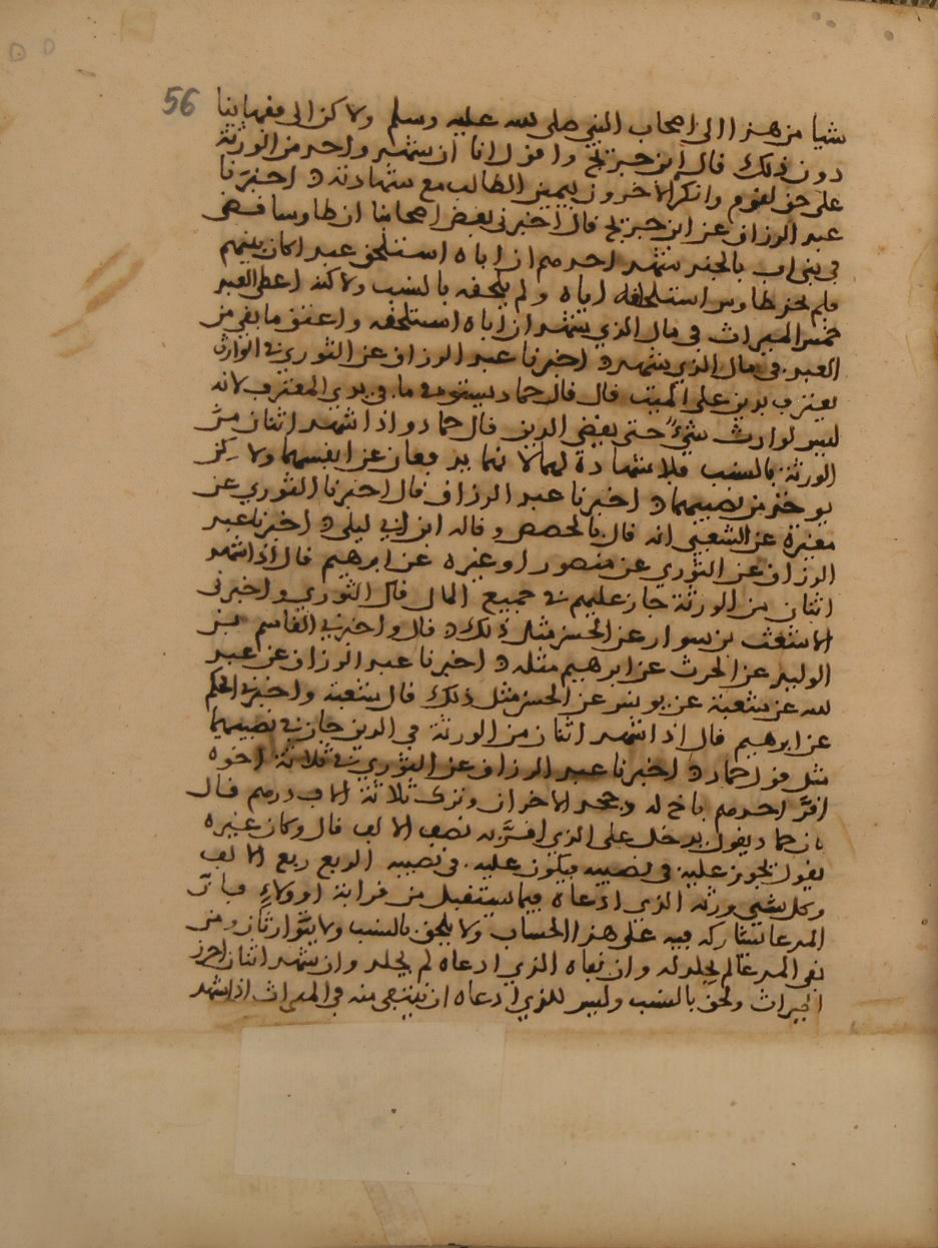 56
شيا من هذا الى اصحاب النبي صلى الله عليه وسلم ولاكن الى فقهاينا
دون ذلك قال ابن جريج واقول انا ان شهد واحد من الورثة
على حق لقوم وانكر الاخرون بيمين الطالب مع شهادته واخبرنا
عبد الرزاق عن ابن جريج قال اخبرني بعض اصحابنا ان طاوسا قضى
في بني اب بالجند شهد احدهم ان اباه استلحق عبدا كان بينهم
فلم يجز طاوس استلحاقه اباه ولم يلحقه بالنسب ولاكنه اعطى العبد
خمس الميراث في مال الذي شهد ان اباه استلحقه واعتق ما بقي من
العبد في مال الذي شهد اخبرنا عبد الرزاق عن الثوري في الوارث
يعترف بدين على الميت قال قال حماد يستوفى ما في يدي المعترف لانه
ليس لوارث شيء حتى يقضى الدين قال حماد واذا شهد اثنان من
الورثة بالنسب فلا شهادة لهما لانهما يدفعان عن انفسهما ولاكن
يوخذ من نصيبهما اخبرنا عبد الرزاق قال اخبرنا الثوري عن
مغيرة عن الشعبي انه قال بالحصص وقاله ابن ابي ليلى اخبرنا عبد
الرزاق عن الثوري عن منصور او غيره عن ابرهيم قال اذا شهد
اثنان من الورثة جاز عليهم في جميع المال قال الثوري واخبرني
الاشعث بن سوار عن الحسن مثل ذلك قال واخبرني القاسم بن
الوليد عن الحرث عن ابرهيم مثله اخبرنا عبد الرزاق عن عبد
الله عن شعبة عن يونس عن الحسن مثل ذلك قال شعبة واخبرني الحكم
عن ابرهيم قال اذا شهد اثنان من الورثة في الدين جاز في نصيبهما
مثل قول حماد اخبرنا عبد الرزاق عن الثوري في ثلاثة اخوه
اقرَّ احدهم باخ له وجحد الاخران وترك ثلاثة الاف درهم قال
كان حماد يقول يدخل على الذي اقرَّ به نصف الالف قال وكان غيره
يقول يجوز عليه في نصيبه فيكون عليه في نصيبه الربع ربع الالف
وكل شيء ورثه الذي ادعاه فيما يستقبل من قرابة او ولاء
المدعا يشاركه فيه على هذا الحساب ولا يلحق بالنسب ولا يتوارثان ومن
نفى المدعا لم يجلد له وان نفاه الذي ادعاه لم يجلد وان شهد اثنان احرز
الميراث ولحق بالنسب وليس للذي ادعاه ان ينتفي منه في الميراث اذا شهد